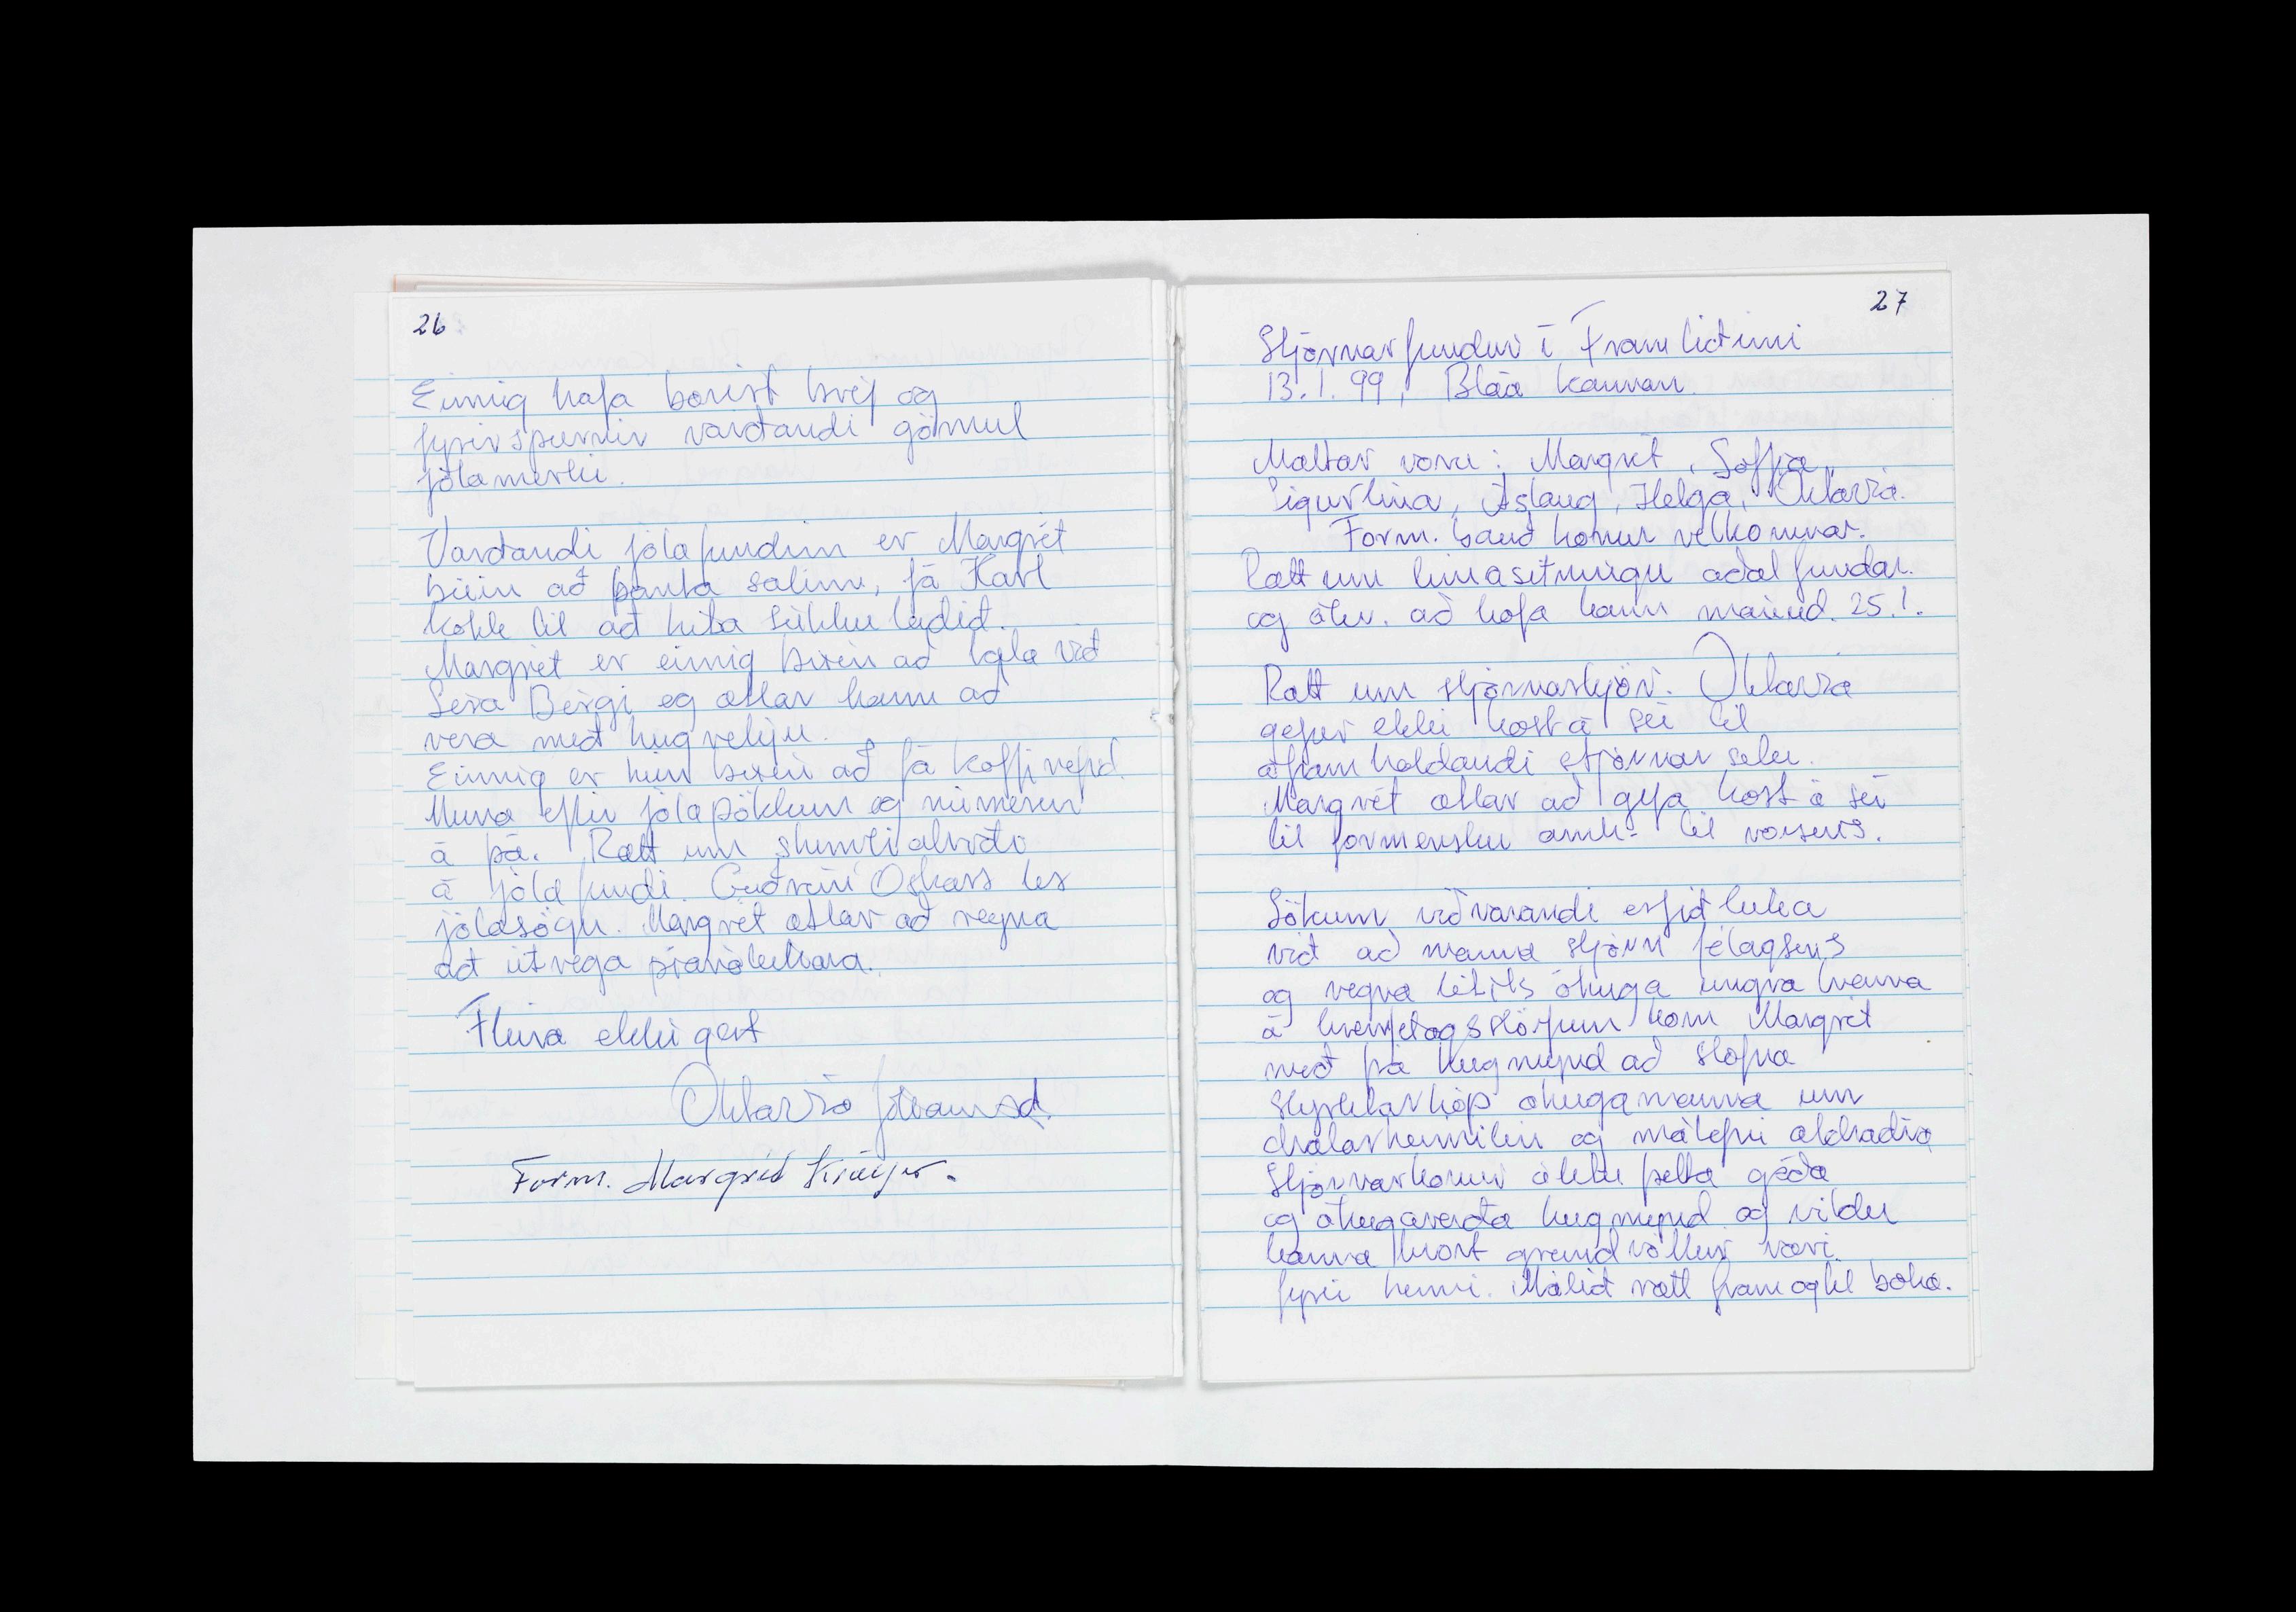 26
Einnig hafa borist bréf og
fyrirspurnir varðandi gömul
jólamerki.
Varðandi jólafundinn er Margrét
búin að panta salinn, fá Karl
kokk til að hita súkkulaðið.
Margrét er einnig búin að tala við
Séra Birgi og ætlar hann að
vera með hugvekju.
Einnig er hún búin að fá kaffirejd.
Muna eftir jólapökkum og númerum
á þá. Rætt um skemmtiatriði
á jólafundi. Guðrún Óskars les
jólasögu. Margrét ætlar að reyna
að útvega píanóleikara.
Fleira ekki gert
Oktavía Jóhannsd.
Form. Margrét Kröyer.
27
Stjórnarfundur í Framtíðinni
13.1.99, Bláa kannan.
Mættar voru: Margrét, Soffía,
Sigurlína, Áslaug, Helga, Oktavía.
Form. bauð konur velkomnar.
Rætt um tímasetningu aðalfundar.
og ákv. að hafa hann mánud. 25.1.
Rætt um stjórnarkjör. Oktavía
gefur ekki kost á sér til
áframhaldandi stjórnar setu.
Margrét ætlar að gefa kost á sér
til formensku amk. til vorsins.
Sökum viðvarandi erfiðleika
við að manna stjórn félagsins
og vegna lítils áhuga ungra kvenna
á kvenfélagsstörfum kom Margrét
með þá hugmynd að stofna
styrktarhóp áhugamanna um
dvalarheimilin og málefni aldraðra
Stjórnarkonur álitu þetta góða
og áhugaverða hugmynd og vildu
kanna hvort grundvöllur væri
fyrir henni. Málið rætt fram og til baka.